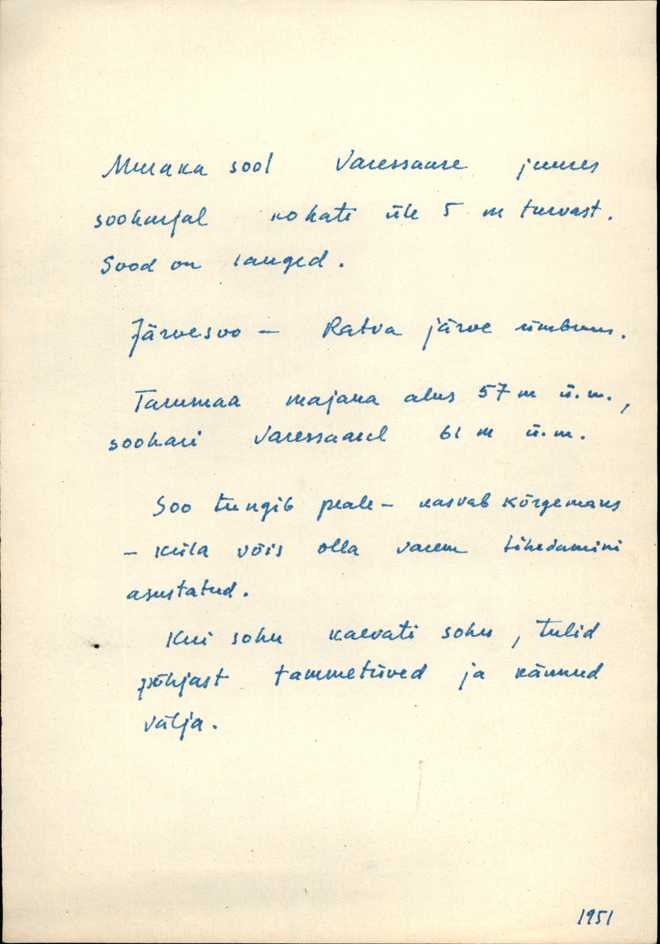 Muraka sool Varessaare juures
sooharjal kohati üle 5 m turvast.
Sood on langed.
Järvesoo – Ratva järve ümbrus.
Tarumaa majana alus 57 m ü.m.,
soohari Varessaarel 61 m ü.m.
Soo tungib peale – kasvab kõrgemaks
– küla võis olla varem tihedamini
asustatud.
Kui sohu kaevati sohu, tulid
põhjast tammetüved ja kännud
välja.
1951